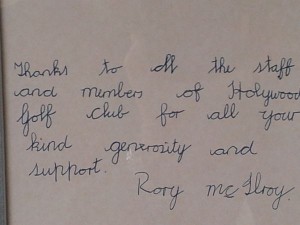 Thanks to all the staff
and members of Holywood
Golf club for all your
kind generosity and
support.
Rory McIlroy.